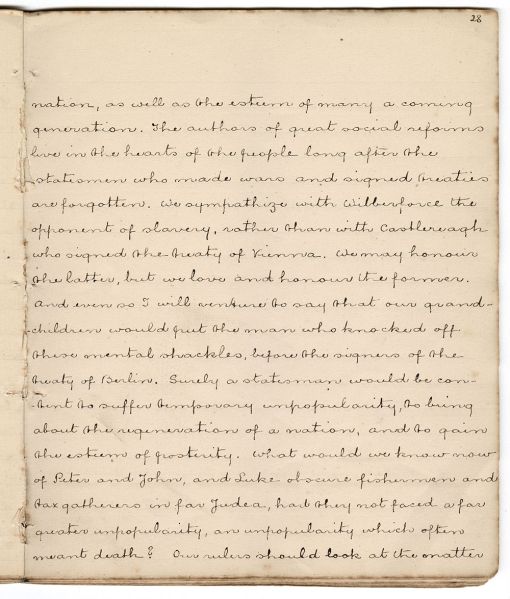 28
nation, as well as the esteem of many a coming
generation. The authors of great social reforms
live in the hearts of the people long after the
statesmen who made wars and signed treaties
are forgotten. We sympathize with Wilberforce the
opponent of slavery, rather than with Castlereagh
who signed the treaty of Vienna. We may honour
the latter, but we love and honour the former.
And even so I will venture to say that our grand-
children would put the man who knocked off
these mental shackles, before the signers of the
treaty of Berlin. Surely a statesman would be con-
tent to suffer temporary unpopularity, to bring
about the regeneration of a nation, and to gain
the esteem of posterity. What would we know now
of Peter and John, and Luke obscure fishermen and
tax gatherers in far Judea, had they not faced a far
greater unpopularity, an unpopularity which often
meant death? Our rulers should look at the matter